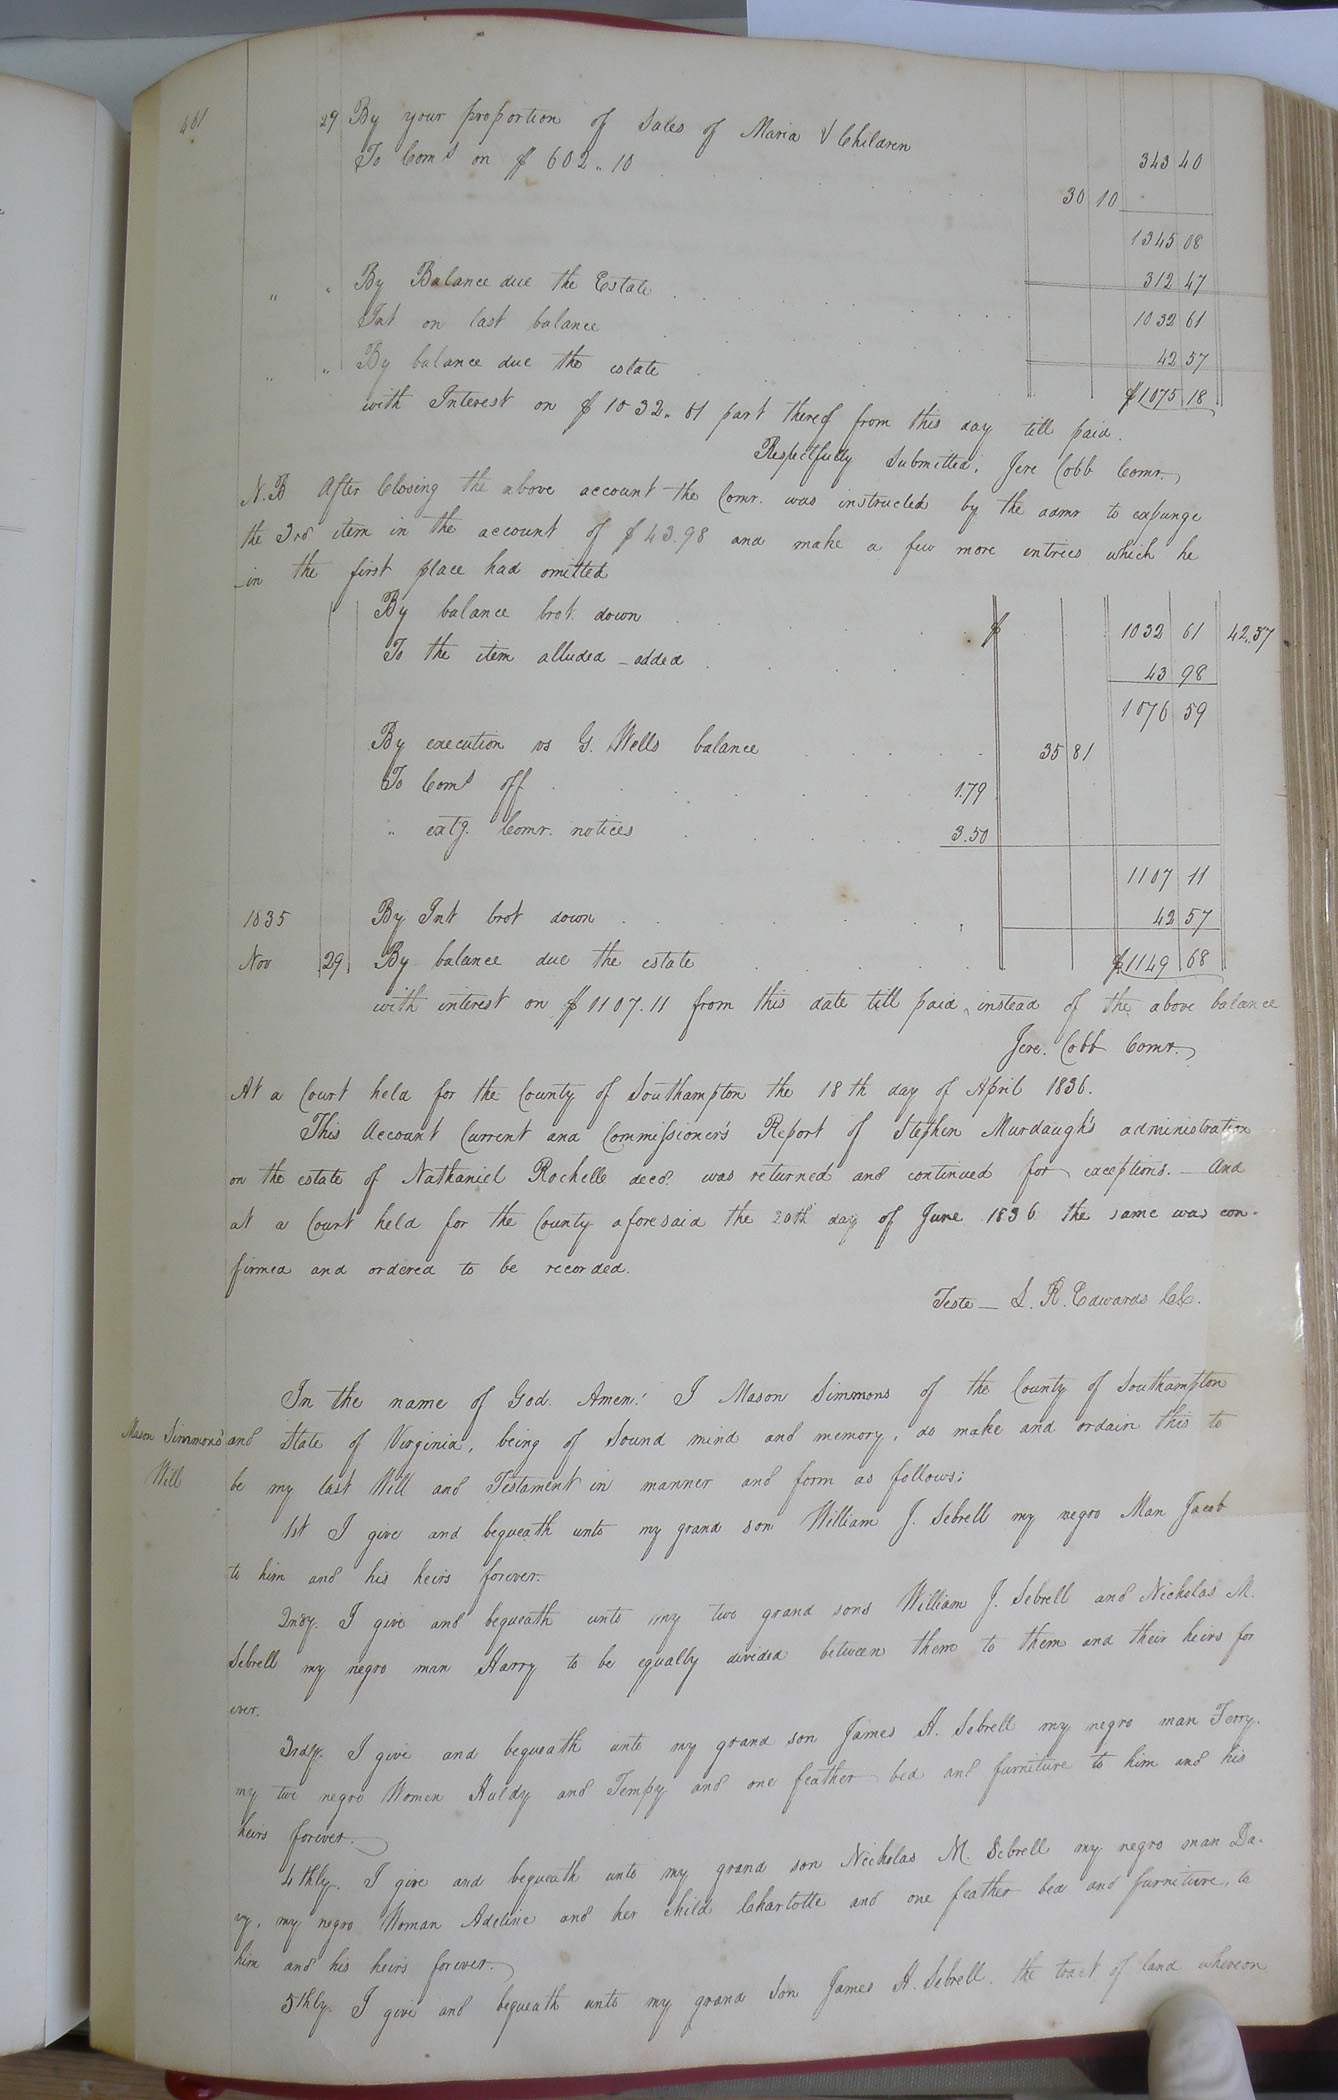 401
29 By your proportion of Sales of Maria & Children 343 40
To Coms on $ 602..10 30 10
1345 08
" " By Balance due the Estate 312 47
Int on last balance 1032 61
" " By balance due the estate 42 57
$1075 18
with Interest on $1032..61 part thereof from this day till paid.
Respectfully Submitted, Jere Cobb Comr.
N.B After Closing the above account the Comr. was instructed by the admr to expunge
the 3rd item in the account of $43.98 and make a few more entries which he
in the first place had omitted
By balance brot down $ 1032 61 42.57
To the item alluded - added 43 98
1076 59
By execution vs G. Wells balance 35 81
To Coms off 1.79
" extg. Comr. notices 3.50
1107 11
1835 By Int brot down 42 57
Nov 29 By balance due the estate $1149 68
with interest on $1107.11 from this date till paid, instead of the above balance
Jere. Cobb Comr.
At a Court held for the County of Southampton the 18th day of April 1836.
This Account Current and Commissioner's Report of Stephen Murdaugh's administration
on the estate of Nathaniel Rochelle decd. was returned and continued for exceptions. - And
at a Court held for the County aforesaid the 20th day of June 1836 the same was con-
firmed and ordered to be recorded.
Teste - L. R. Edwards C.C.
In the name of God. Amen! I Mason Simmons of the County of Southampton
Mason Simmons' and State of Virginia, being of Sound mind and memory, do make and ordain this to
Will be my last Will and Testament in manner and form as follows:
1st I give and bequeath unto my grand son William J. Sebrell my negro Man Jacob
to him and his heirs forever.
2ndy. I give and bequeath unto my two grand sons William J. Sebrell and Nicholas M.
Sebrell my negro man Harry to be equally divided between them to them and their heirs for
ever.
3rdly. I give and bequeath unto my grand son James H. Sebrell my negro man Terry.
my two negro Women Huldy and Tempy and one feather bed and furniture to him and his
heirs forever.
4thly. I give and bequeath unto my grand son Nicholas M. Sebrell my negro man Da-
vy, my negro Woman Adeline and her child Charlotte and one feather bed and furniture, to
him and his heirs forever.
5thly. I give and bequeath unto my grand Son James H. Sebrell. the tract of land whereon